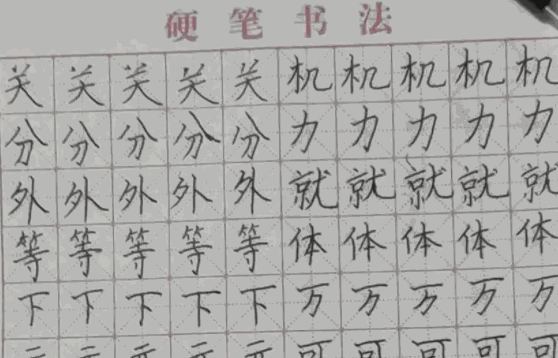 硬笔书法
关关关关关机机机机机
分分分分分力力力力力
外外外外外就就就就就
等等等等等体体体体体
下下下下下万万万万万